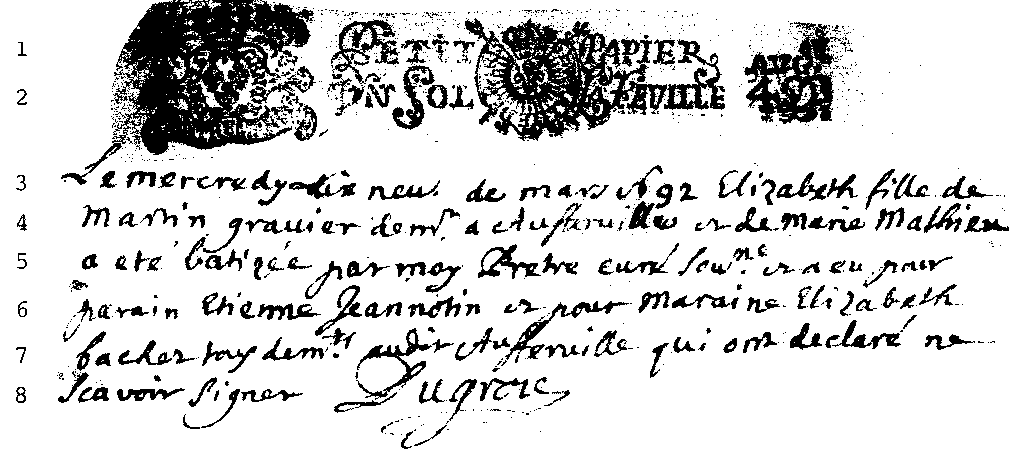 PETIT PAPIER
UN SOL LA FEUILLE
Le mercredy dix neuf de mars 1692 Elizabeth fille de
Martin gravier dem.t a Aufferville et de Marie Mathieu
a eté batizée par moy Pretre curé sou.né et a eu pour
parain Etienne Jeannotin et pour Maraine Elizabeth
bachet tous dem.ts audit Aufferville qui ont declaré ne
scavoir signer